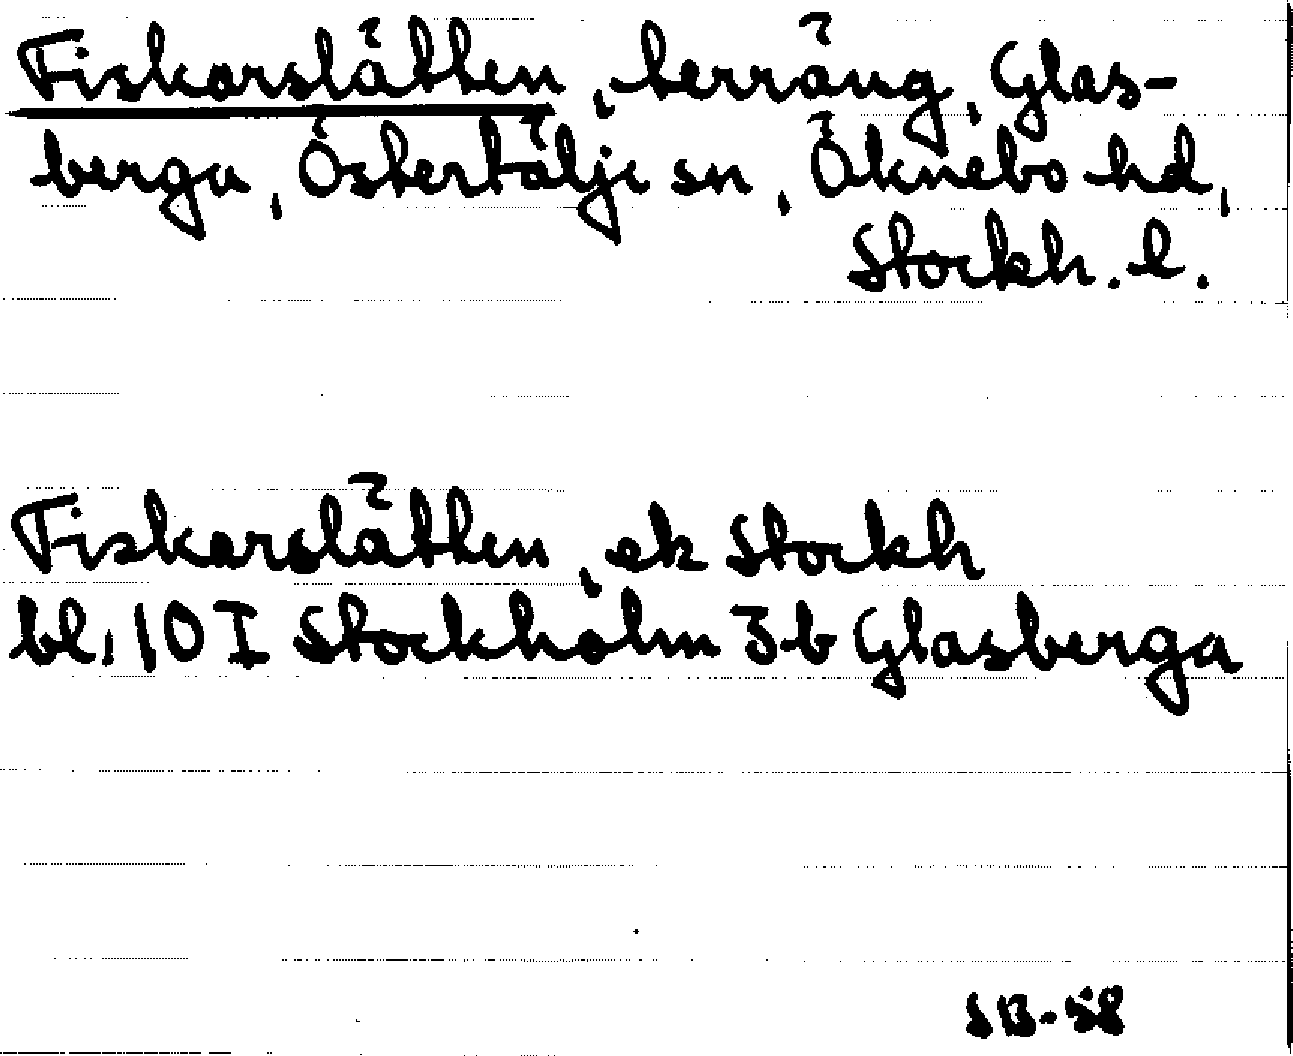 Fiskarslätten, terräng, Glas-
berga, Östertälje sn, Öknebo hd,
Stockh. l.
Fiskarslätten, ek Stockh
bl. 10 I Stockholm 3b Glasberga
SB-58